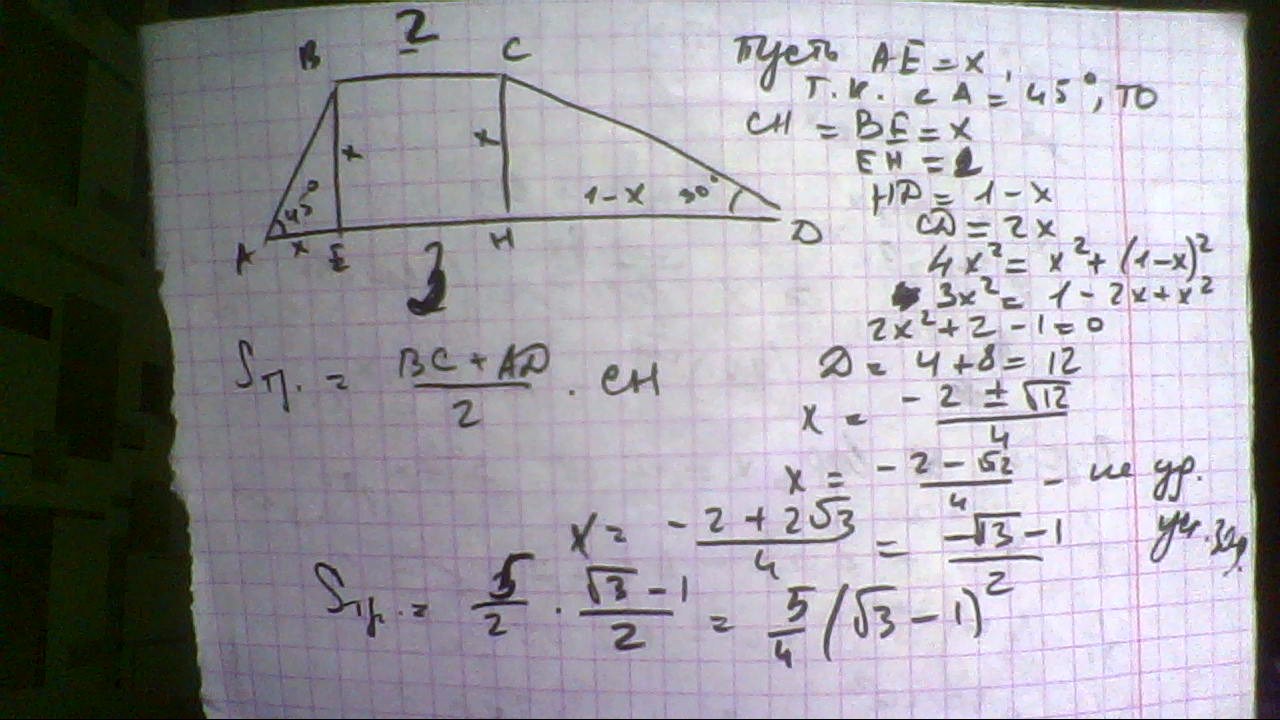 2
B C
x x
45° 1-x 30°
A x E H D
3
Пусть AE = x
т.к. ∠A = 45°, то
CH = BE = x
EH = 2
HD = 1-x
CD = 2x
4x² = x² + (1-x)²
3x² = 1 - 2x + x²
2x² + 2 - 1 = 0
D = 4 + 8 = 12
x = - 2 ± √12 / 4
x = - 2 - √12 / 4 - не ур.
уч. зад.
Sтр. = BC + AD / 2 · CH
x = - 2 + 2√3 / 4 = -√3 - 1 / 2
Sтр. = 5/2 · √3 - 1 / 2 = 5/4 (√3 - 1)